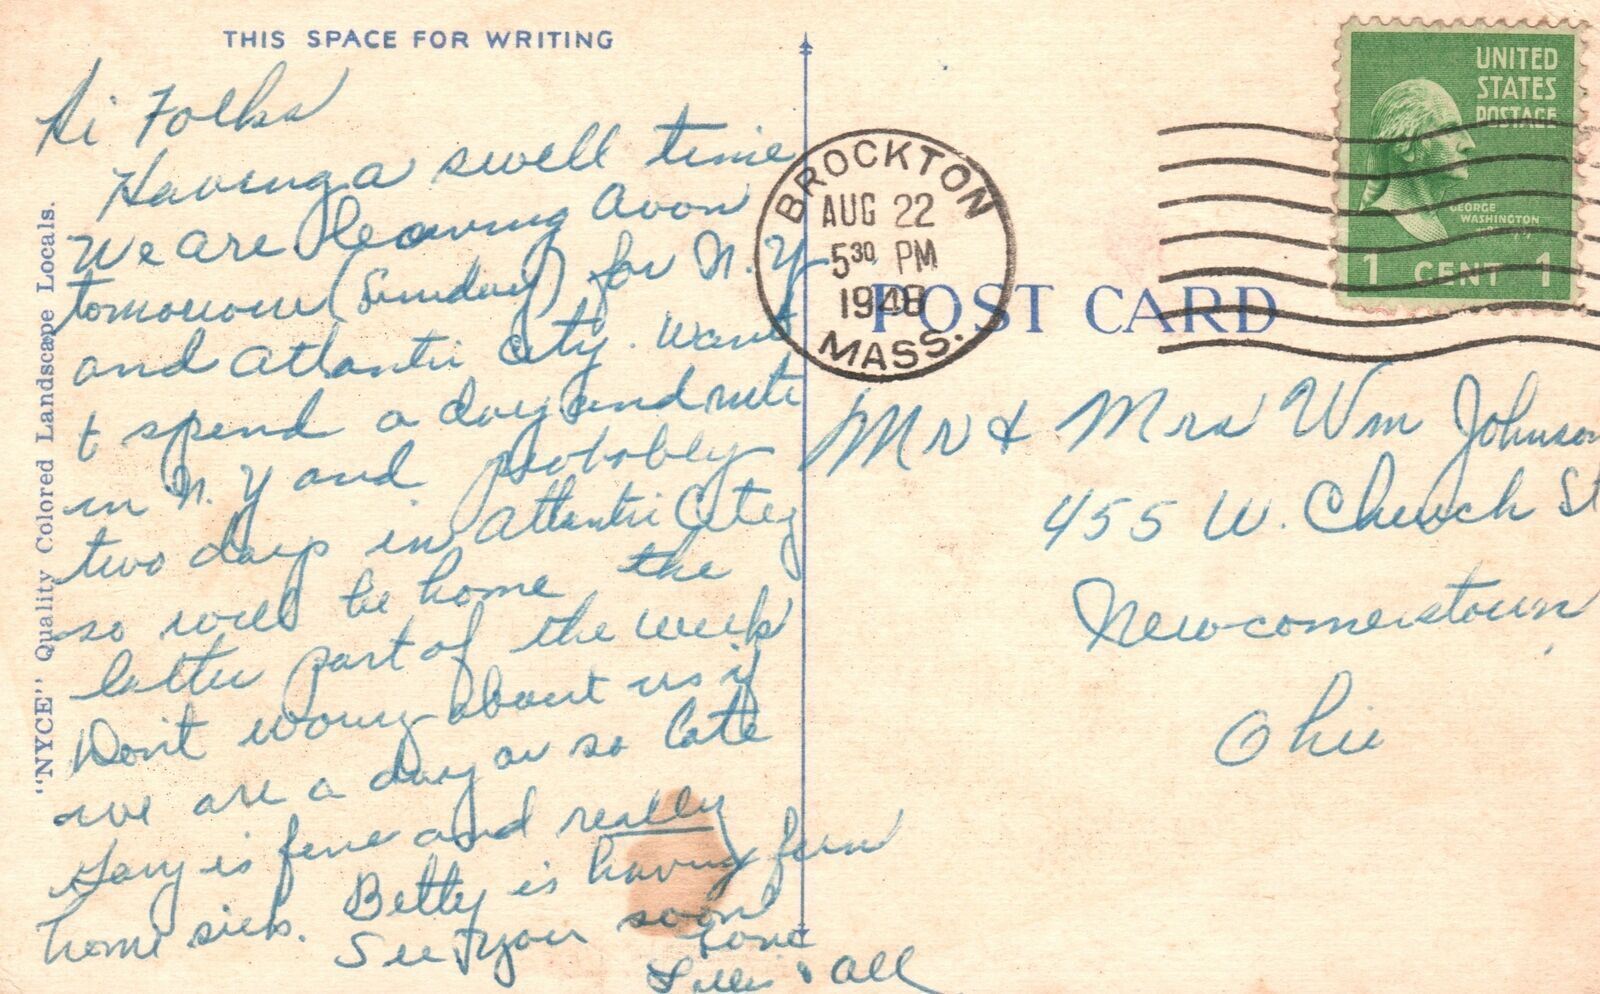 THIS SPACE FOR WRITING
Hi Folks
Having a swell time
We are leaving Avon
tomorrow (Sunday) for N.Y
and Atlantic City. Want
t spend a day and nite
in N.Y and probably
two days in Atlantic City
so will be home the
latter part of the week
Don't worry about us if
we are a day or so late
Gary is fine and really
home sick. Betty is having fun
See you soon
Love
& All
"NYCE" Quality Colored Landscape Locals.
BROCKTON
AUG 22
5 30 PM
1948
MASS.
POST CARD
UNITED
STATES
POSTAGE
GEORGE
WASHINGTON
1 CENT 1
Mr & Mrs Wm Johnson
455 W. Church St
Newcomerstown,
Ohio